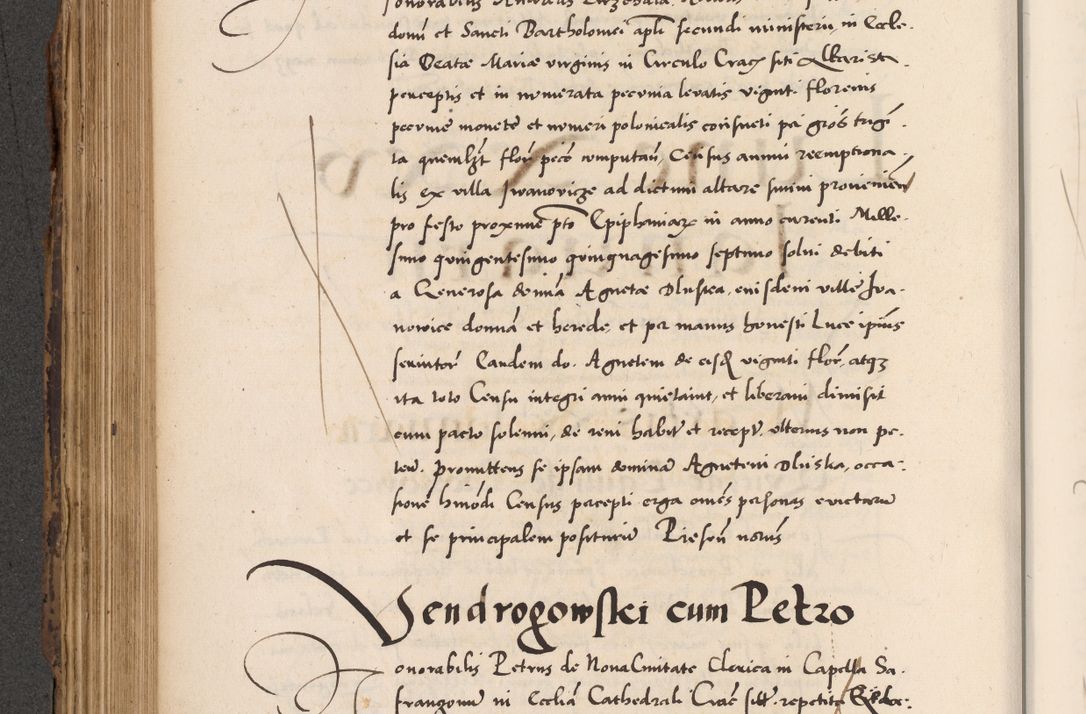 donu et Sancti Bartholomei apli secundi ministerii, in Eccle-
sia Beatæ Mariæ virginis in Circulo Crac̄ siti Altarista
perceptis et in numerata pecunia levatis viginti florenis
pecuniæ monetæ et numeri polonicalis consueti per gros trige-
ta quemlꝫt flor̄ pec̄ computan̄, Census annui reemptiona-
lis ex villa Iwanovicze ad dictum altare suum provenien̄
pro festo proxime pto Epiphaniarū in anno currenti Mille-
simo quingentesimo quinquagesimo septimo solui debiti
a Generosa domina Agnetæ Dluska, eiusdem villæ Iva-
novice domina et herede, et per manus honesti Lucæ ipsius
servitor̄ Eandem do. Agnetem de eisd̄ viginti flor̄, atqꝫ
ita toto Censu integri anni quietavit, et liberam dimisit
cum pacto solenni, de rem habit̄ et recept̄ ulterius non pe-
ten̄. Promittens se ipsam dominam Agnetem Dluska, occa-
sione hmōdi Census percepti erga omēs personas evictorem
et se principalem positurum Presen̄ notus
Sendrogowski cum Petro
onorabilis Petrus de Nova Civitate Clerica in Capella Sa-
frangorum in Ecclia Cathedrali Crac̄ sitt̄ repetito